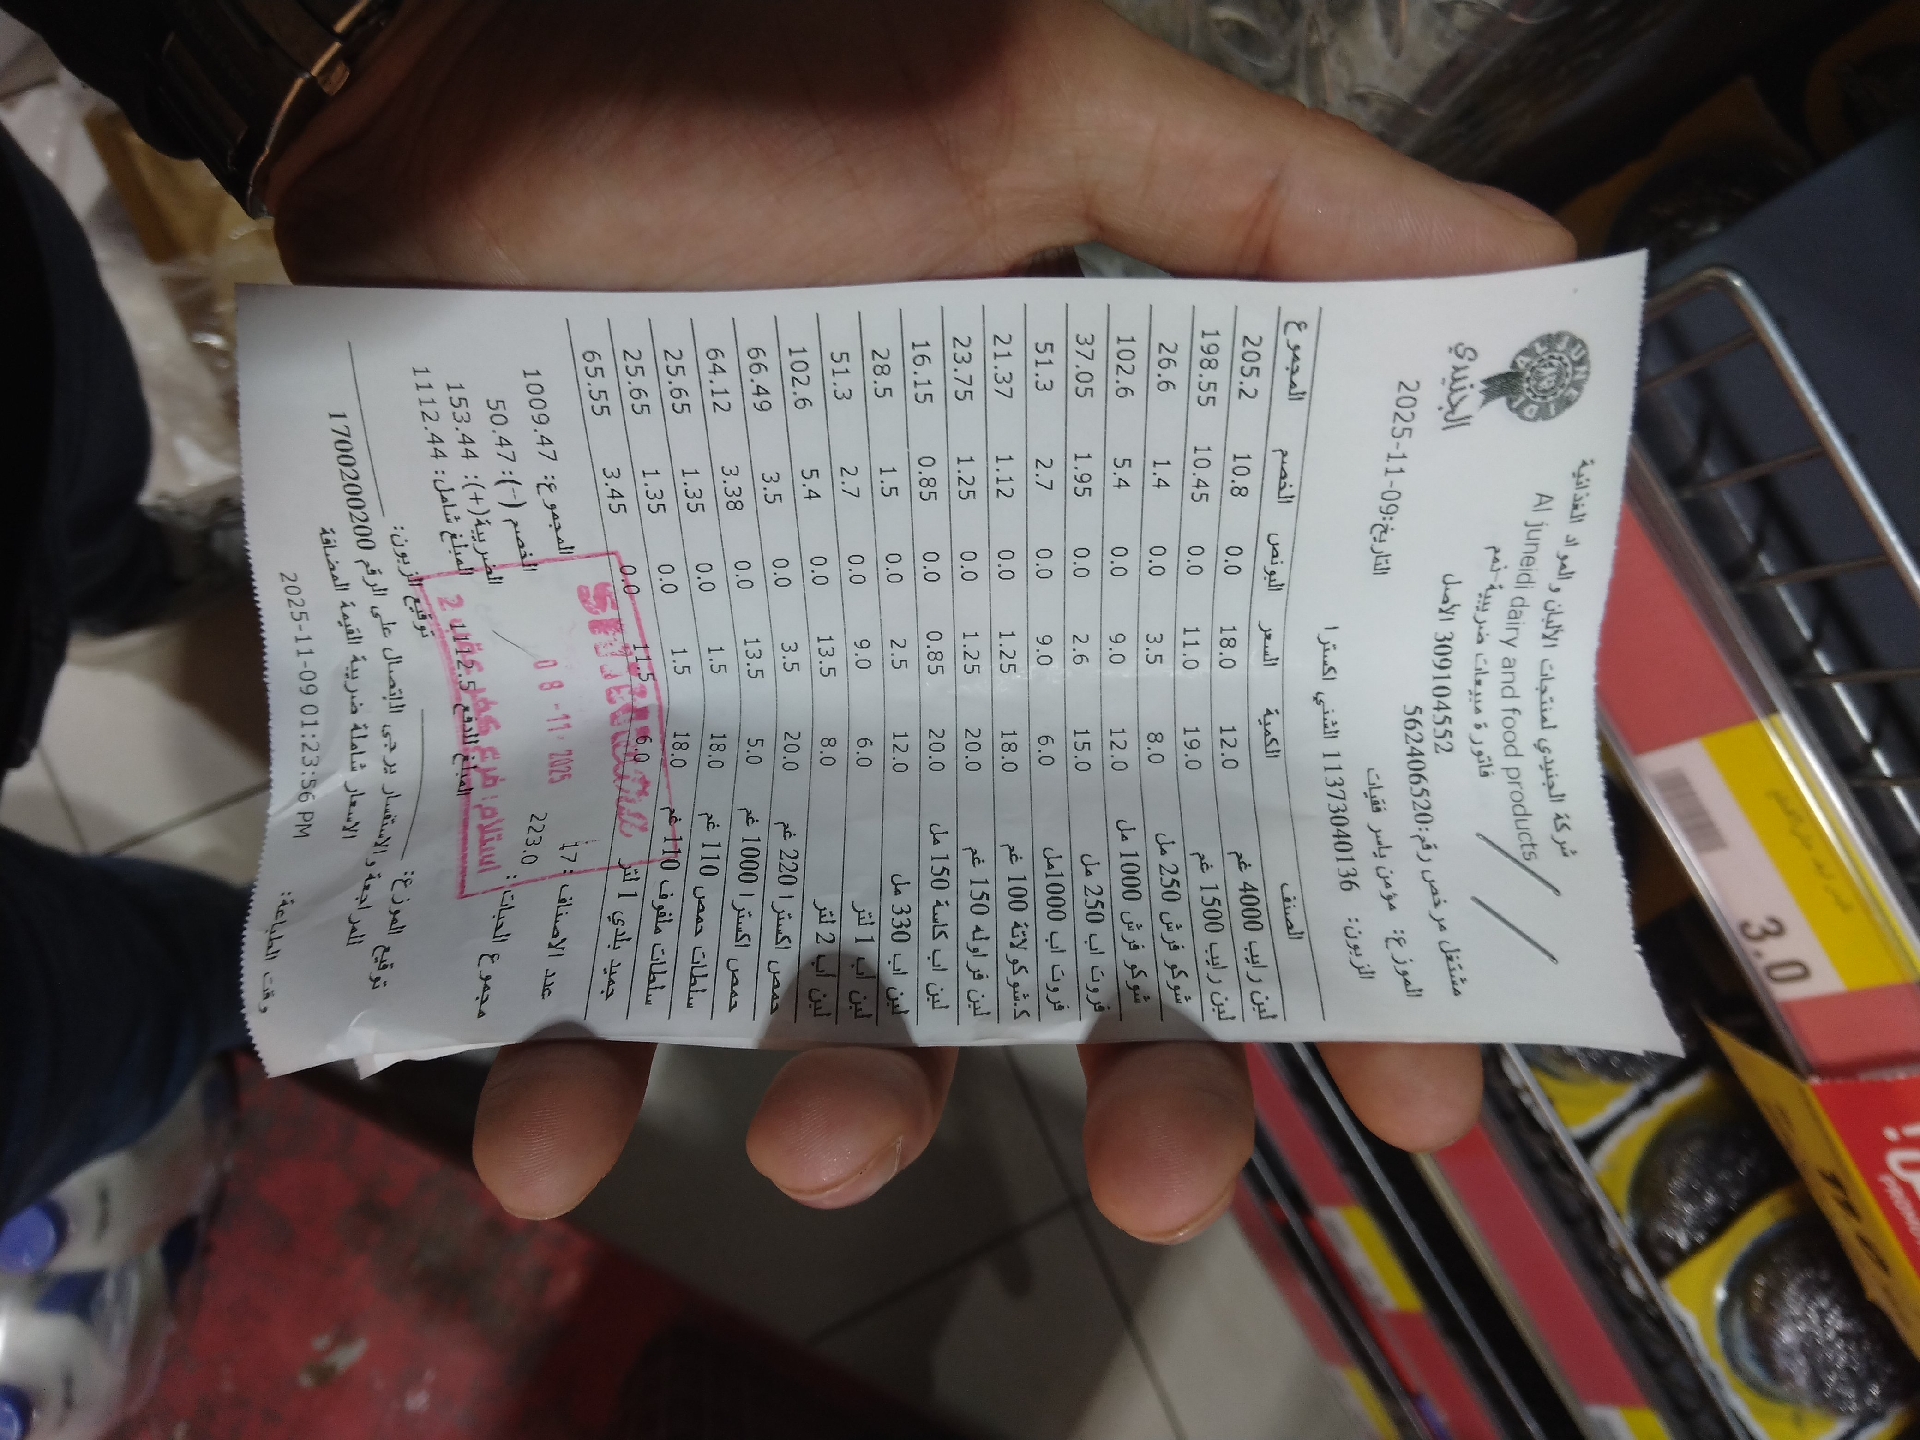 شركة الجنيدي لمنتجات الألبان و المواد الغذائية
Al juneidi dairy and food products
الجنيدي
فاتورة مبيعات ضريبية-نعم
309104552 الأصل
مشتغل مرخص رقم:562406520
التاريخ:2025-11-09
الموزع: مؤمن ياسر فقيات
الزبون: 1137304013​6 الشني اكسترا
الصنف الكمية السعر البونص الخصم المجموع
لبن رايب 4000 غم 12.0 18.0 0.0 10.8 205.2
لبن رايب 1500 غم 19.0 11.0 0.0 10.45 198.55
شوكو فرش 250 مل 8.0 3.5 0.0 1.4 26.6
شوكو فرش 1000 مل 12.0 9.0 0.0 5.4 102.6
فروت اب 250 مل 15.0 2.6 0.0 1.95 37.05
فروت اب 1000مل 6.0 9.0 0.0 2.7 51.3
ك.شوكولاتة 100 غم 18.0 1.25 0.0 1.12 21.37
لبن فراوله 150 غم 20.0 1.25 0.0 1.25 23.75
لبن اب كاسة 150 مل 20.0 0.85 0.0 0.85 16.15
لبن اب 330 مل 12.0 2.5 0.0 1.5 28.5
لبن اب 1 لتر 6.0 9.0 0.0 2.7 51.3
لبن اب 2 لتر 8.0 13.5 0.0 5.4 102.6
حمص اكسترا 220 غم 20.0 3.5 0.0 3.5 66.49
حمص اكسترا 1000 غم 5.0 13.5 0.0 3.38 64.12
سلطات حمص 110 غم 18.0 1.5 0.0 1.35 25.65
سلطات ملفوف 110 غم 18.0 1.5 0.0 1.35 25.65
جميد بلدي 1 لتر 6.0 11.5 0.0 3.45 65.55
عدد الاصناف :17 المجموع: 1009.47
مجموع الحبات : 223.0 الخصم (-): 50.47
الضريبة(+): 153.44
المبلغ شامل: 1112.44
المبلغ المدفوع 1112.5
08-11-2025
استلام: فرع كفر عقب 2
توقيع الموزع: توقيع الزبون:
للمراجعة و الاستفسار يرجى الاتصال على الرقم 1700200200
الاسعار شاملة ضريبة القيمة المضافة
وقت الطباعة: 2025-11-09 01:23:56 PM
3.0